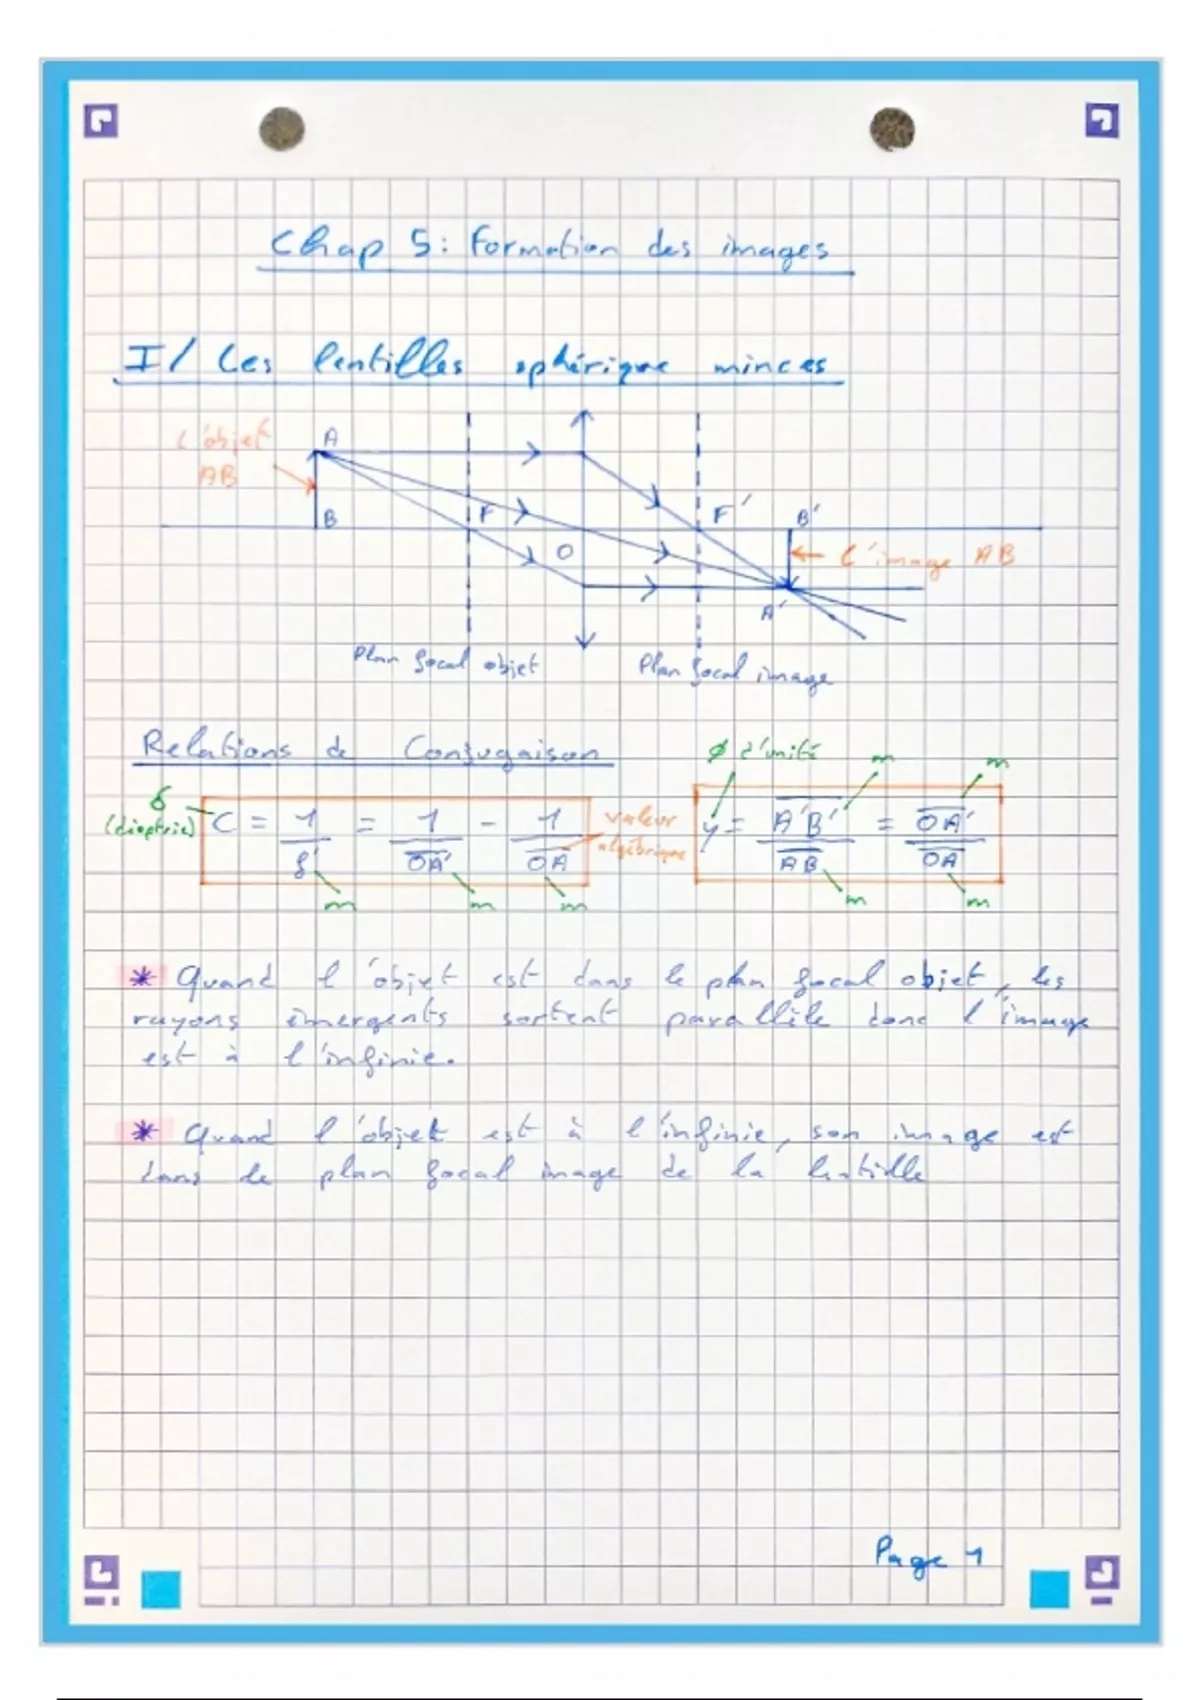 Chap 5: Formation des images
I/ Les lentilles sphérique minces
L'objet
AB
A
B
F
O
F'
B'
A'
L'image AB
Plan focal objet
Plan focal image
Relations de Conjugaison
δ
(dioptrie)
C = 1/f' = 1/OA' - 1/OA
m m m
valeur
algébrique
Ø d'unité
m m
γ = A'B'/AB = OA'/OA
m m
* Quand l'objet est dans le plan focal objet, les
rayons émergents sortent parallèle donc l'image
est à l'infinie.
* Quand l'objet est à l'infinie, son image est
dans le plan focal image de la lentille
Page 1